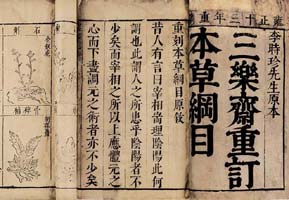 雍正十三年重
李時珍先生原本
三樂齋重訂
本草綱目
重刻本草綱目原敘
昔人有言曰宰相當理陰陽此何
謂也此謂人之所患乎陰陽者不
少矣而宰相之所以上應體元之
心而下盡調元之術者亦不少矣
石斛
骨碎補